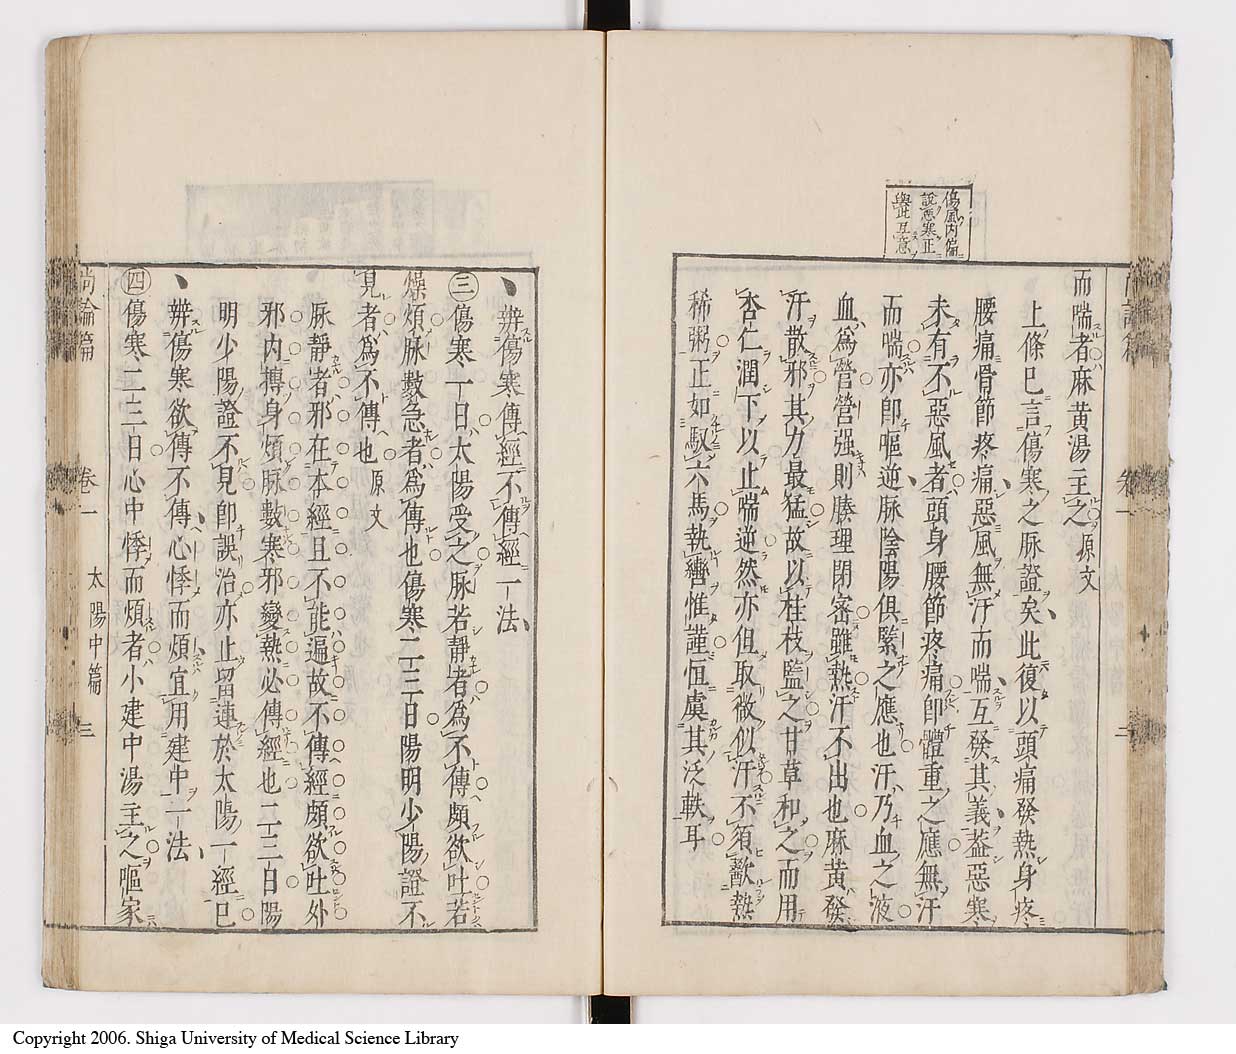 傷風内偏
説惡寒正
與此互意
而喘者麻黄湯主之 原文
上條已言傷寒之脉證矣此復以頭痛發熱身疼
腰痛骨節疼痛惡風無汗而喘互發其義葢惡寒
未有不惡風者頭身腰節疼痛即體重之應無汗
而喘亦即嘔逆脉陰陽俱緊之應也汗乃血之液
血爲營營强則腠理閉密雖熱汗不出也麻黄發
汗散邪其力最猛故以桂枝監之甘草和之而用
杏仁潤下以止喘逆然亦但取微似汗不須歠熱
稀粥正如馭六馬執轡惟謹恒虞其泛軼耳
辨傷寒傳經不傳經一法
㊂傷寒一日太陽受之脉若靜者爲不傳頗欲吐若
燥煩脉數急者爲傳也傷寒二三日陽明少陽證不
見者爲不傳也 原文
脉靜者邪在本經且不能遍故不傳經頗欲吐外
邪内摶身煩脉數寒邪變熱必傳經也二三日陽
明少陽證不見即誤治亦止留連於太陽一經已
辨傷寒欲傳不傳心悸而煩宜用建中一法
㊃傷寒二三日心中悸而煩者小建中湯主之嘔家
尚論篇 卷一 太陽中篇 三
Copyright 2006. Shiga University of Medical Science Library